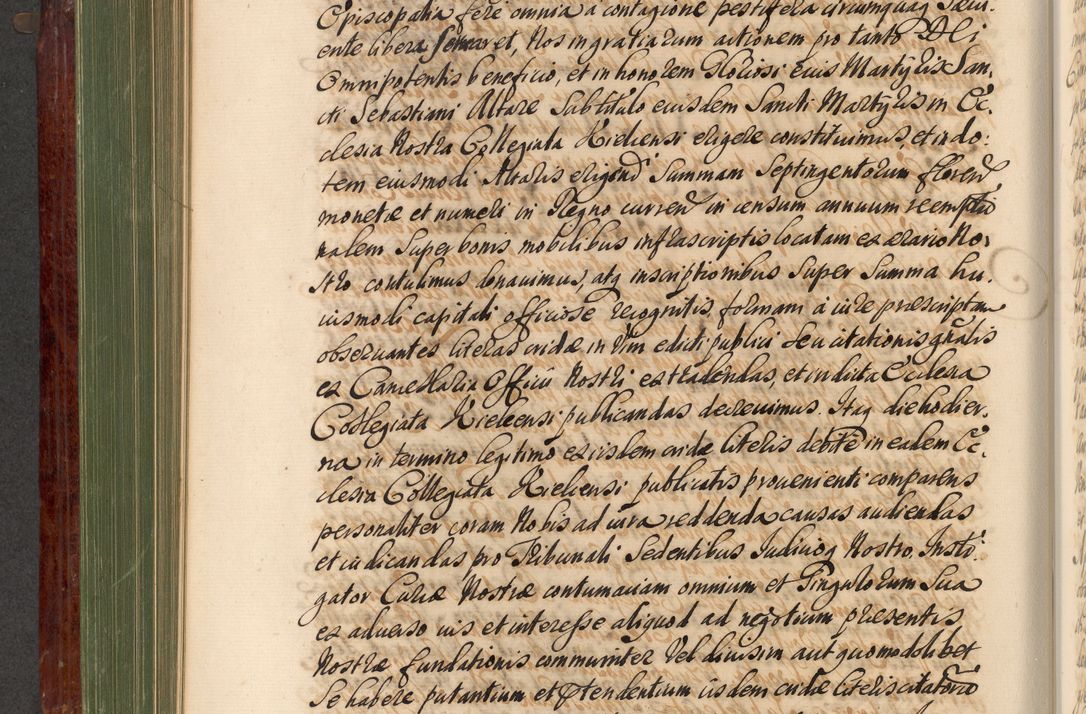 Episcopalia fere omnia à contagione pestifera circumquaq Saevi-
ente libera servaret, Nos in gratiarum actionem pro tanto DEi
Omnipotentis beneficio, et in honorem Gloriosi eius Martyris San-
cti Sebastiani Altare Sub titulo eiusdem Sancti Martyris in Ec-
clesia Nostra Collegiata Kielcensi erigere constituimus, et in do-
tem eiusmodi Altaris erigend Summam Septingentorum floren
monetæ et numeri in Regno curren in censum annuum reemptio
nalem Super bonis mobilibus infrascriptis locatam ex ærario No-
stro contulimus donavimus, atq inscriptionibus Super Summa hu-
iusmodi capitali officiose recognitis, formam à iure præscriptam
observantes literas cridæ in vim edicti publici Seu citationis gnalis
ex Cancellaria Officii Nostri extradendas, et in dicta Ecclesia
Collegiata Kielcensi publicandas decrevimus. Itaq die hodier-
na in termino legitimo ex iisdem cridæ literis debite in eadem Ec-
clesia Collegiata Kielcensi publicatis provenienti comparens
personaliter coram Nobis ad iura reddenda causas audiendas
et iudicandas pro Tribunali Sedentibus Iudicioq Nostro, Insti-
gator Curiæ Nostræ contumaciam omnium et Singulorum Sua
ex adverso ius et interesse aliquod ad negotium præsentis
Nostræ fundationis communiter vel divisim aut quomodolibet
Se habere putantium et prtendentium iisdem cridæ literis citatorio